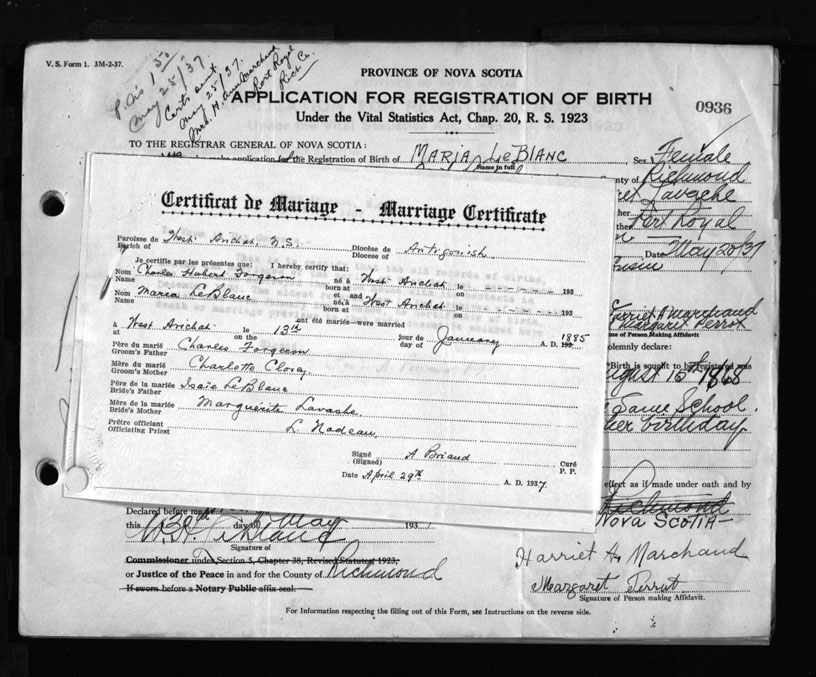 V. S. Form 1. 3M-2-37.
May 25/37
Certs sent
May 25/37.
Mrs. H. Ann Marchand
Port Royal
Rich Co.
PROVINCE OF NOVA SCOTIA
APPLICATION FOR REGISTRATION OF BIRTH
0936
Under the Vital Statistics Act, Chap. 20, R. S. 1923
TO THE REGISTRAR GENERAL OF NOVA SCOTIA:
application for the Registration of Birth of MARIA LE BLANC Sex Female
Name in full
County of Richmond
Lavache
Port Royal
Date May 20/37
Certificat de Mariage - Marriage Certificate
Paroisse de West Arichat, N.S. Diocèse de Antigonish
Parish of Diocese of
Je certifie par les présentes que: I hereby certify that:
Nom Charles Hubert Forgeron né à West Arichat le 193
Name born at on
Nom Maria LeBlanc et and née à West Arichat le 193
Name born at on
ont été mariés—were married
à West Arichat le 13th jour de January A. D. 193 1885
at on the day of
Père du marié Charles Forgeron
Groom's Father
Mère du marié Charlotte Clory
Groom's Mother
Père de la mariée Isaie LeBlanc
Bride's Father
Mère de la mariée Marguerite Lavache
Bride's Mother
Prêtre officiant L. Nadeau,
Officiating Priest
Signé A Briand Curé
(Signed) P. P.
Date April 29th A. D. 1937
Harriet A Marchand
Margaret Perrot
Name of Person making Affidavit
solemnly declare:
Birth is sought to be registered was
August 15th 1868
Same School.
her birthday
effect as if made under oath and by
Richmond
NOVA SCOTIA—
Declared before me
this day of May 193
Signature of
Commissioner under Section 5, Chapter 38, Revised Statutes 1923,
or Justice of the Peace in and for the County of Richmond
If sworn before a Notary Public affix seal.
Harriet A. Marchand
Margaret Perrot.
Signature of Person making Affidavit.
For Information respecting the filling out of this Form, see Instructions on the reverse side.